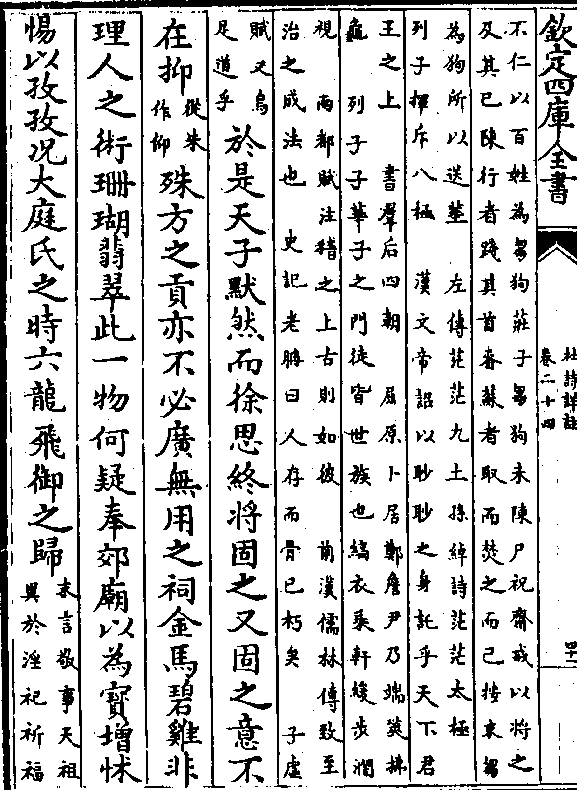 欽定四庫全書
杜詩詳註
卷二十四
不仁以百姓為芻狗莊子芻狗未陳尸祝齋戒以將之
及其已陳行者踐其首脊蘇者取而焚之而已按束芻
為狗所以送塟 左傳茫茫九土孫綽詩茫茫太極
列子揮斥八極 漢文帝詔以眇眇之身託乎天下君
王之上 書羣后四朝 屈原卜居鄭詹尹乃端筴拂
龜 列子子華子之門徒皆世族也縞衣乗軒緩步濶
視 兩都賦注稽之上古則如彼 前漢儒林傳致至
治之成法也 史記老聃曰人存而骨已朽矣 子虛
賦又烏
足道乎
於是天子默然而徐思終將固之又固之意不
在抑
從朱
作仰
殊方之貢亦不必廣無用之祠金馬碧雞非
理人之術珊瑚翡翠此一物何疑奉郊廟以為寳增怵
惕以孜孜况大庭氏之時六龍飛御之歸
末言敬事天祖
異於淫祀祈福